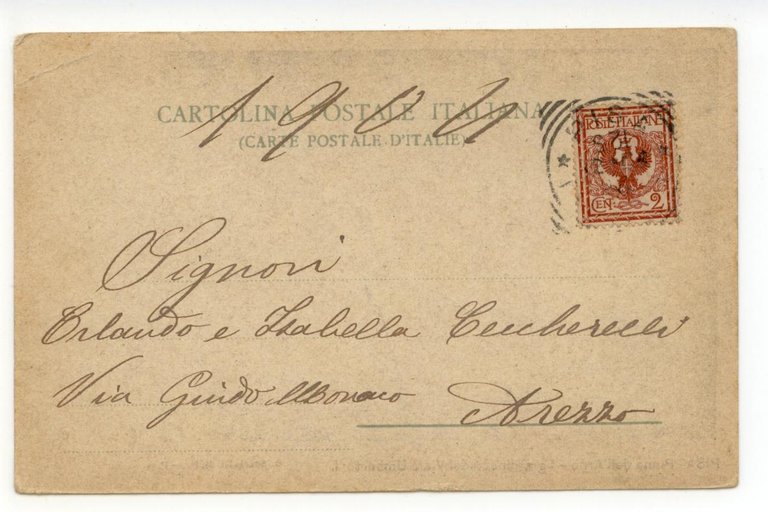 1902
CARTOLINA POSTALE ITALIANA
(CARTE POSTALE D'ITALIE)
POSTE ITALIANE
CEN 2
Signori
Erlando e Isabella Ceccherelli
Via Guido Monaco Arezzo